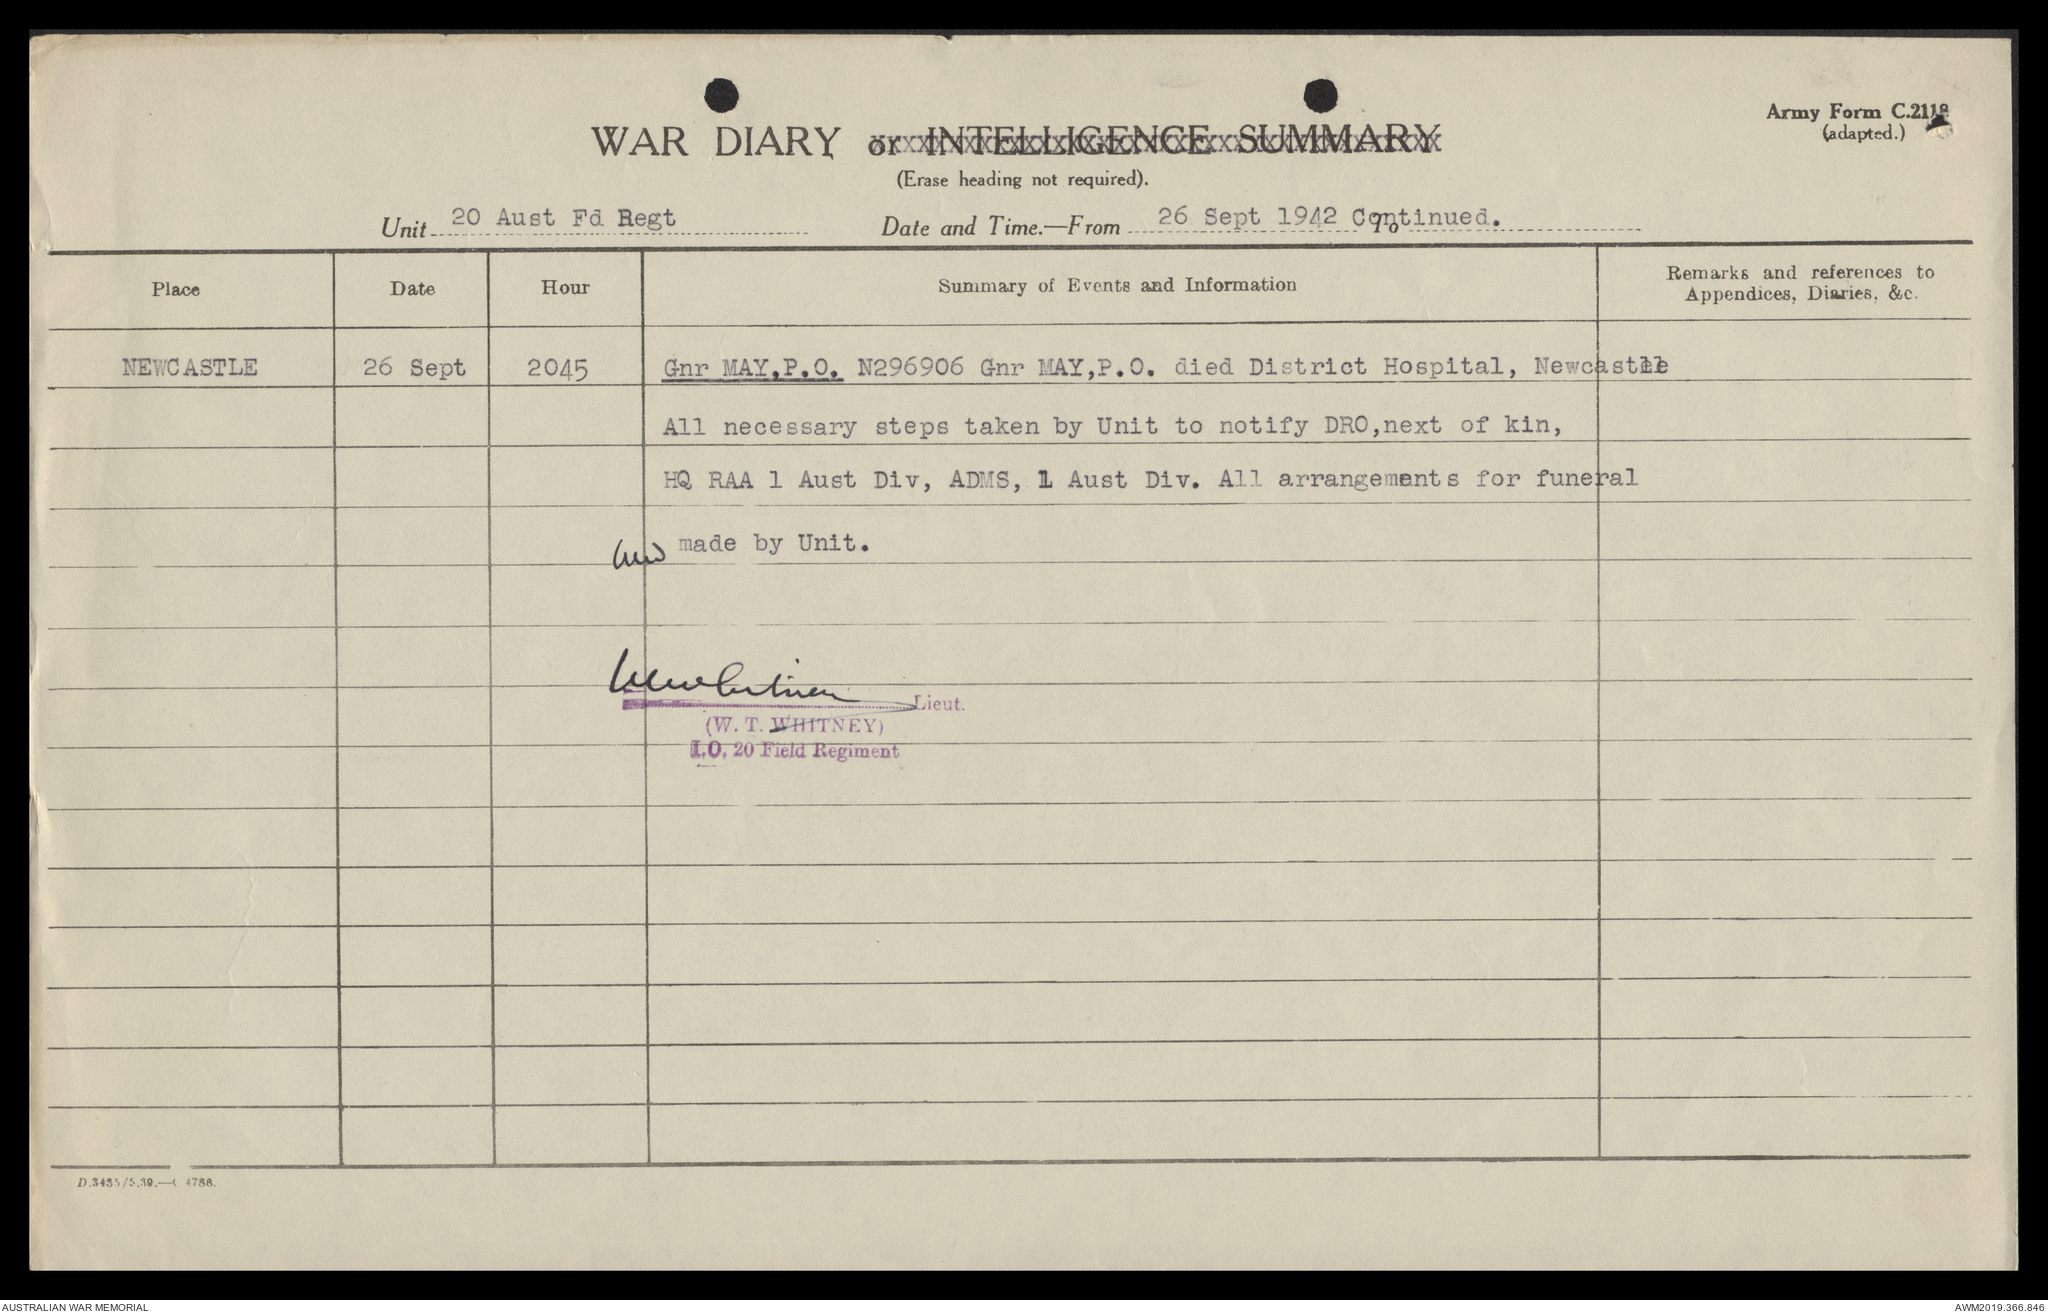 Army Form C.2118
(adapted.)
WAR DIARY or INTELLIGENCE SUMMARY
(Erase heading not required).
Unit 20 Aust Fd Regt Date and Time.—From 26 Sept 1942 Continued. To
Place Date Hour Summary of Events and Information Remarks and references to
Appendices, Diaries, &c.
NEWCASTLE 26 Sept 2045 Gnr MAY,P.O. N296906 Gnr MAY,P.O. died District Hospital, Newcastle
All necessary steps taken by Unit to notify DRO,next of kin,
HQ RAA 1 Aust Div, ADMS, 1 Aust Div. All arrangements for funeral
made by Unit.
Lieut.
(W. T. WHITNEY)
I.O. 20 Field Regiment
AUSTRALIAN WAR MEMORIAL AWM2019.366.846